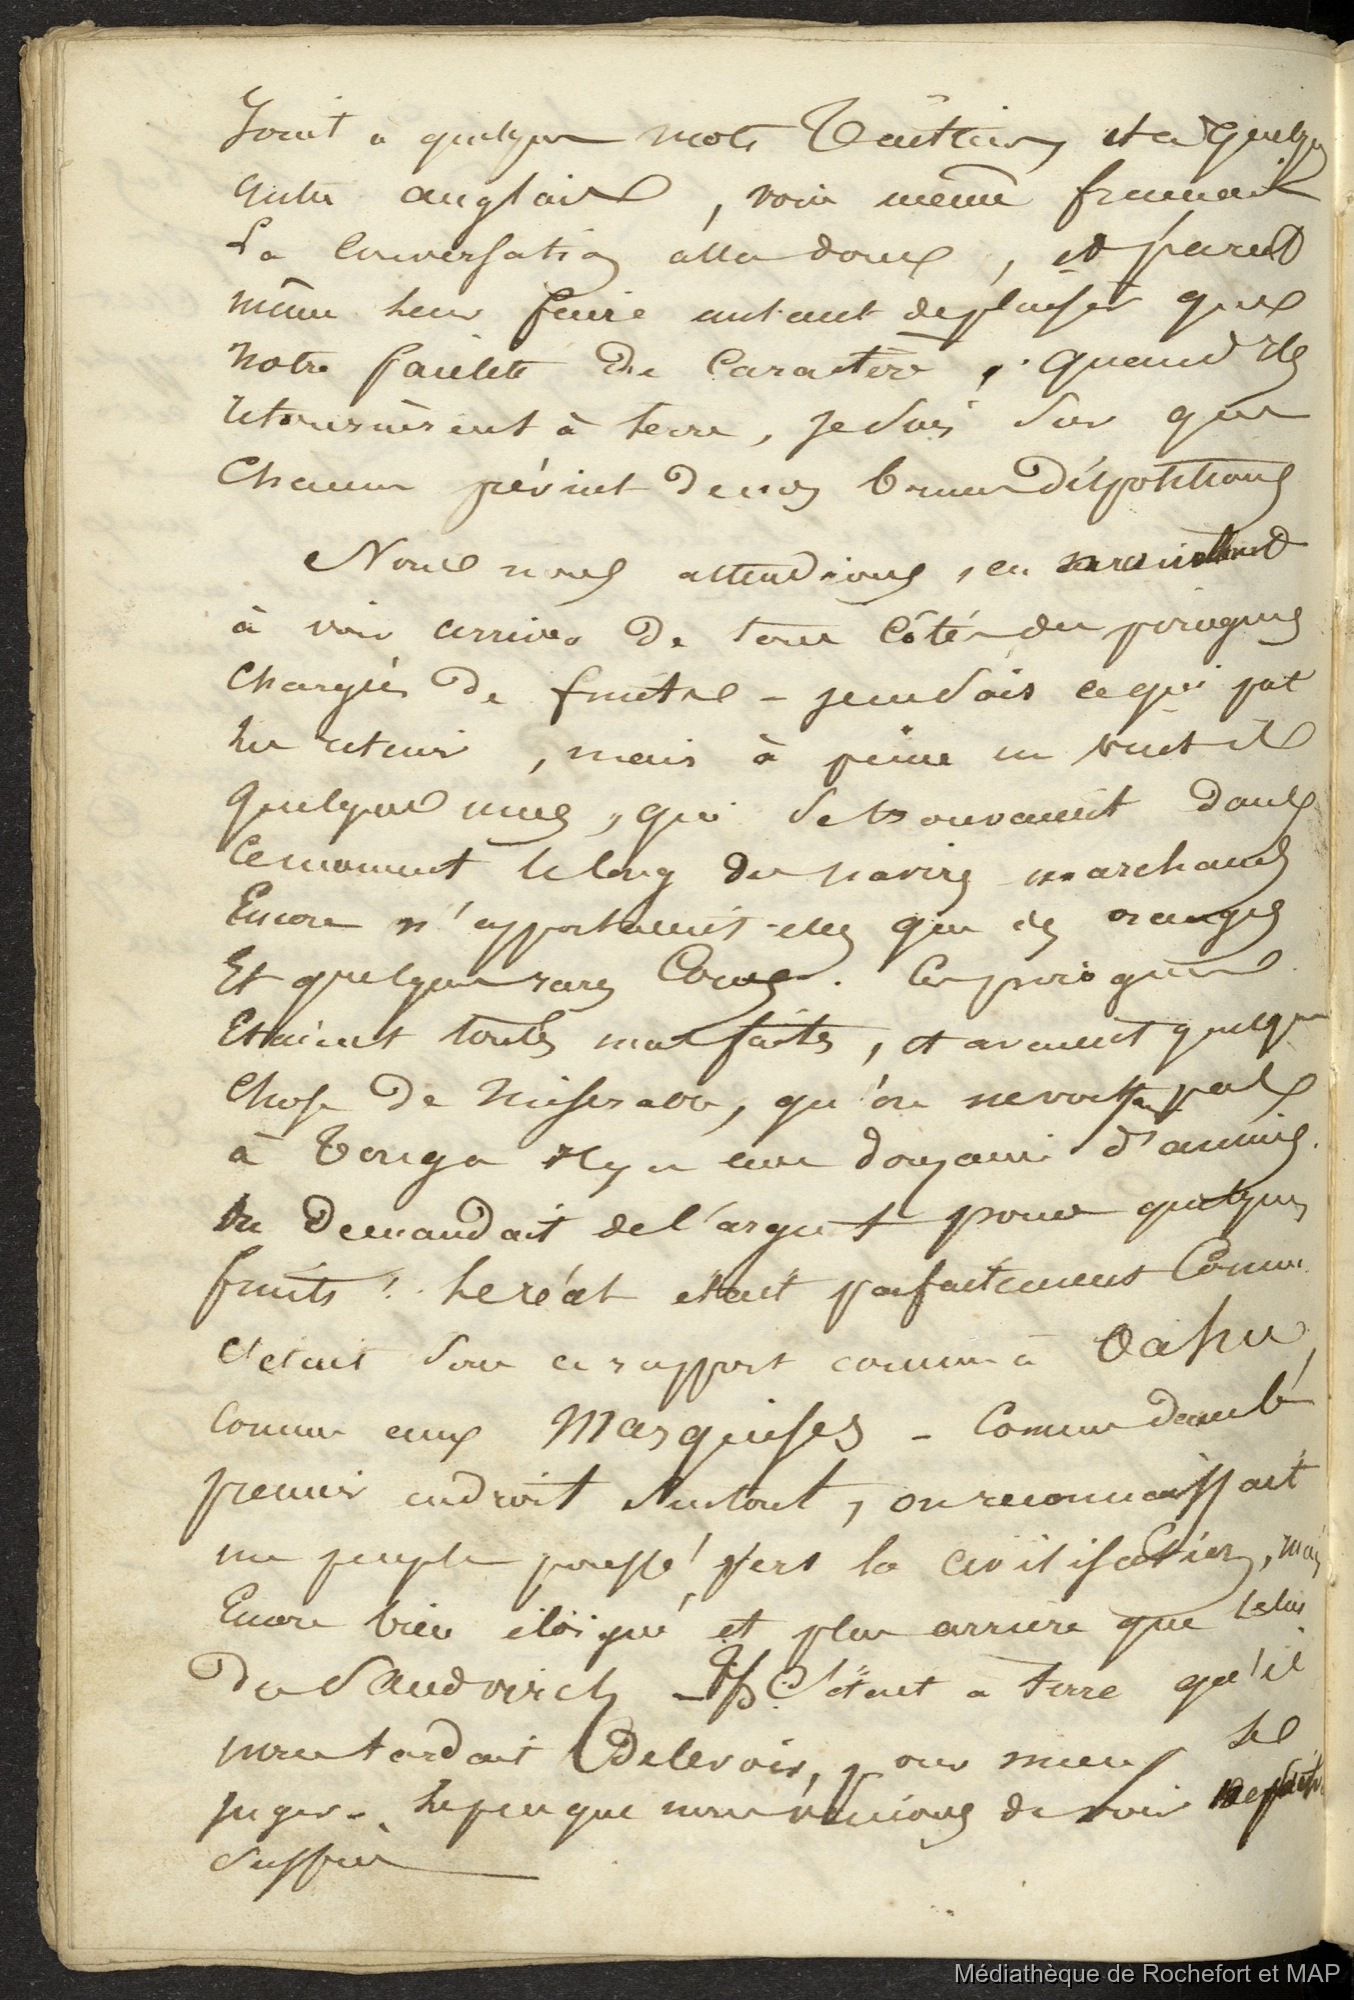 Joint à quelques mots Taïtiens et à quelques
autres anglais, voire même français
La conversation alla donc, et parut
même leur faire autant de plaisir que
notre facilité de caractère, quand ils
retournèrent à terre, je suis sûr que
chacun prévint de nos bonnes dispositions
Nous nous attendions, en
à voir arriver de tous côtés des pirogues
chargées de fruits - je ne sais ce qui put
les retenir, mais à peine en vint il
quelques unes, qui se trouvaient dans
ce moment le long des navires marchands
Encore n'apportaient-elles que des oranges
Et quelques rares Cocos. Ces pirogues
Etaient toutes mal faites, et avaient quelque
chose de misérable, qu'on ne voit pas
à Tonga il y a une douzaine d'années.
On demandait de l'argent pour quelques
fruits! le réal était parfaitement connu
c'était sous ce rapport comme à Oahu,
comme aux Marquises - Comme dans le
premier endroit surtout, on reconnaissait
un peuple poussé vers la civilisation, mais
Encore bien éloigné et plus arriéré que celui
des Sandwich - C'était à terre qu'il
me tardait de le voir, pour mieux le
juger - le peu que nous venions de voir
suffire
Médiathèque de Rochefort et MAP